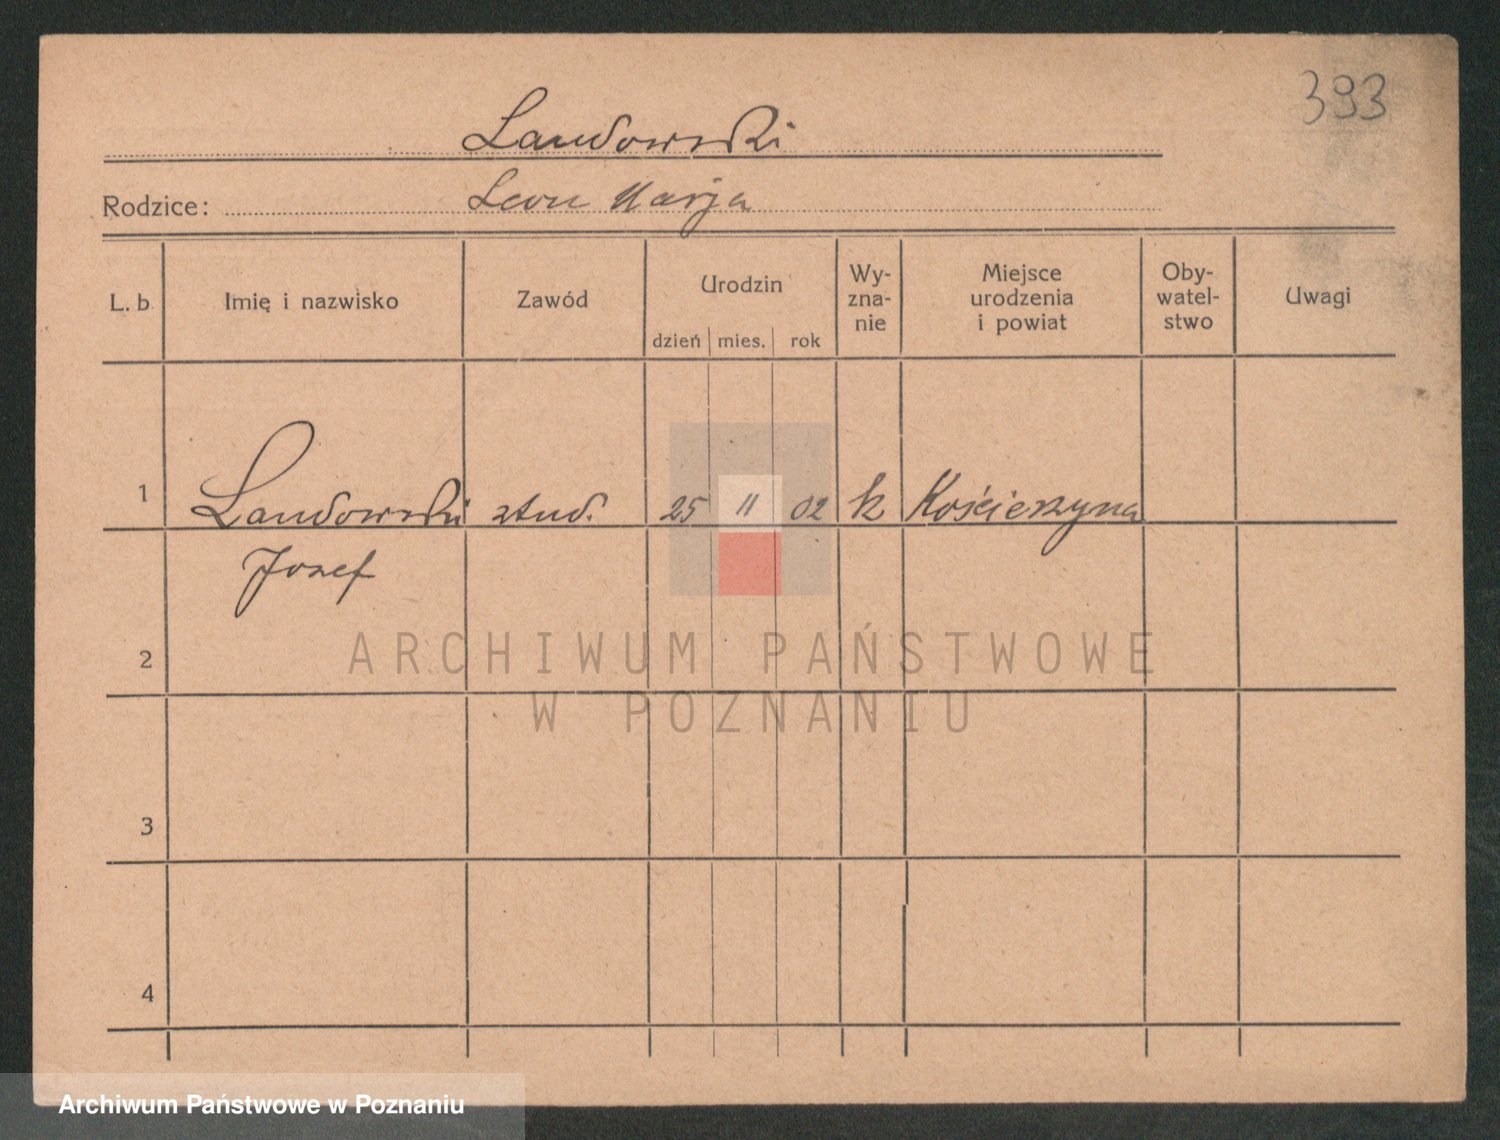 393
Landowski
Rodzice: Leon Marja
L. b.
Imię i nazwisko
Zawód
Urodzin
dzień mies. rok
Wy-
zna-
nie
Miejsce
urodzenia
i powiat
Oby-
watel-
stwo
Uwagi
1 Landowski stud. 25 11 02 k Kościerzyna
Jozef
2
3
4
ARCHIWUM PAŃSTWOWE
W POZNANIU
Archiwum Państwowe w Poznaniu